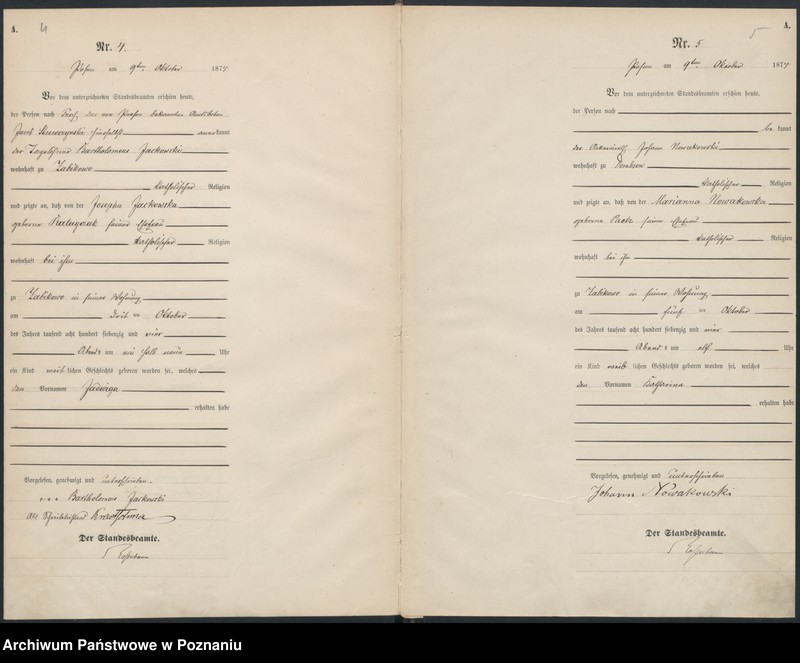 A.
4
Nr. 4.
Posen am 9ten Oktober 1874
Vor dem unterzeichneten Standesbeamten erschien heute,
der Person nach
Jacob anerkannt
der Bartholomeus Jackowski
wohnhaft zu Zabikowo
katholischer Religion
und zeigte an, daß von der Josepha Jackowska
geborene seiner Ehefrau
katholischer Religion
wohnhaft bei ihm
zu Zabikowo in seiner Wohnung
am ten Oktober
des Jahres tausend acht hundert siebenzig und vier
Abends um halb neun Uhr
ein Kind weiblichen Geschlechts geboren worden sei, welches
den Vornamen Jadwiga
erhalten habe
Vorgelesen, genehmigt und unterschrieben
+++ Bartholomeus Jackowski
als
Der Standesbeamte.
A.
5
Nr. 5
Posen am 9ten Oktober 1874
Vor dem unterzeichneten Standesbeamten erschien heute,
der Person nach
bekannt
der Johann Nowakowski
wohnhaft zu
katholischer Religion
und zeigte an, daß von der Marianna Nowakowska
geborene seiner Ehefrau
katholischer Religion
wohnhaft bei ihm
zu Zabikowo in seiner Wohnung
am fünf ten Oktober
des Jahres tausend acht hundert siebenzig und vier
Abends um elf Uhr
ein Kind weiblichen Geschlechts geboren worden sei, welches
den Vornamen Katharina
erhalten habe
Vorgelesen, genehmigt und unterschrieben
Johann Nowakowski
Der Standesbeamte.
Archiwum Państwowe w Poznaniu